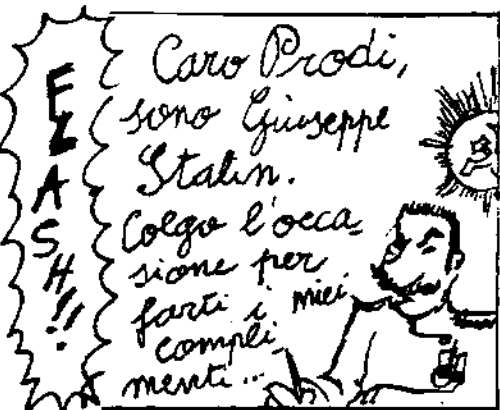 FZASH!!
Caro Prodi,
sono Giuseppe
Stalin.
Colgo l'occa=
sione per
farti i miei
compli
menti...